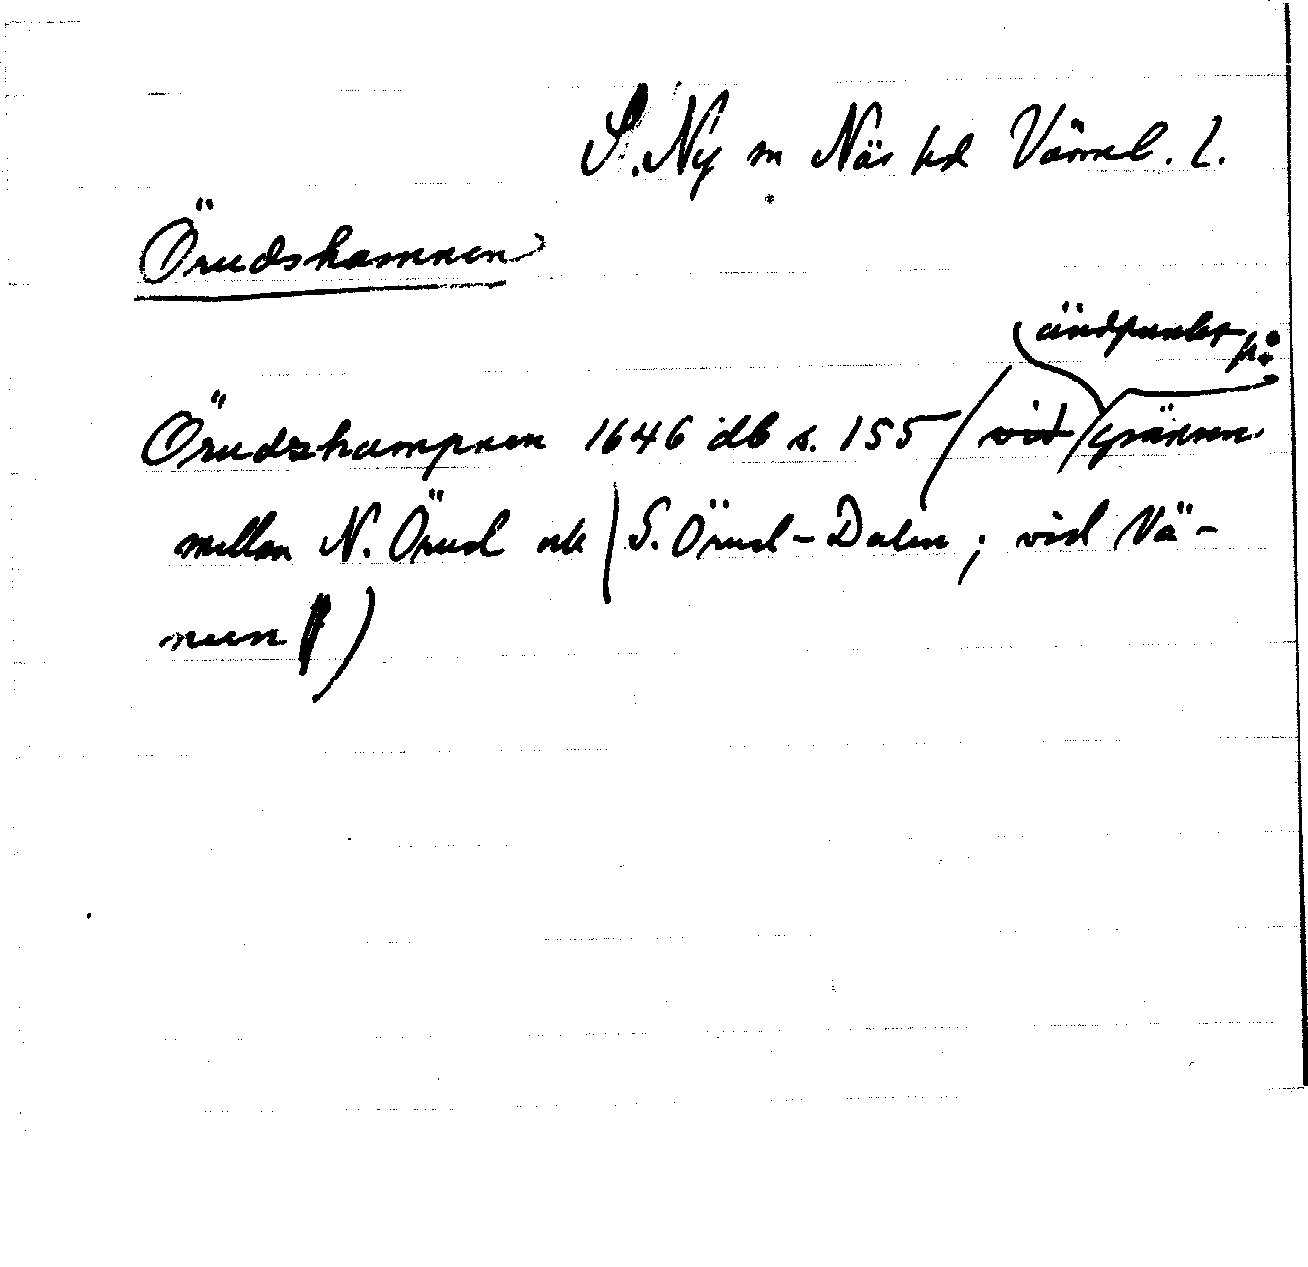 S. Ny sn Näs hd Värml. l.
Örudshamnen
ändpunkt på
Örudzhampnen 1646 db s. 155 (vid gränsen
mellan N. Örud och S. Örud-Dalen; vid Vä-
nern)